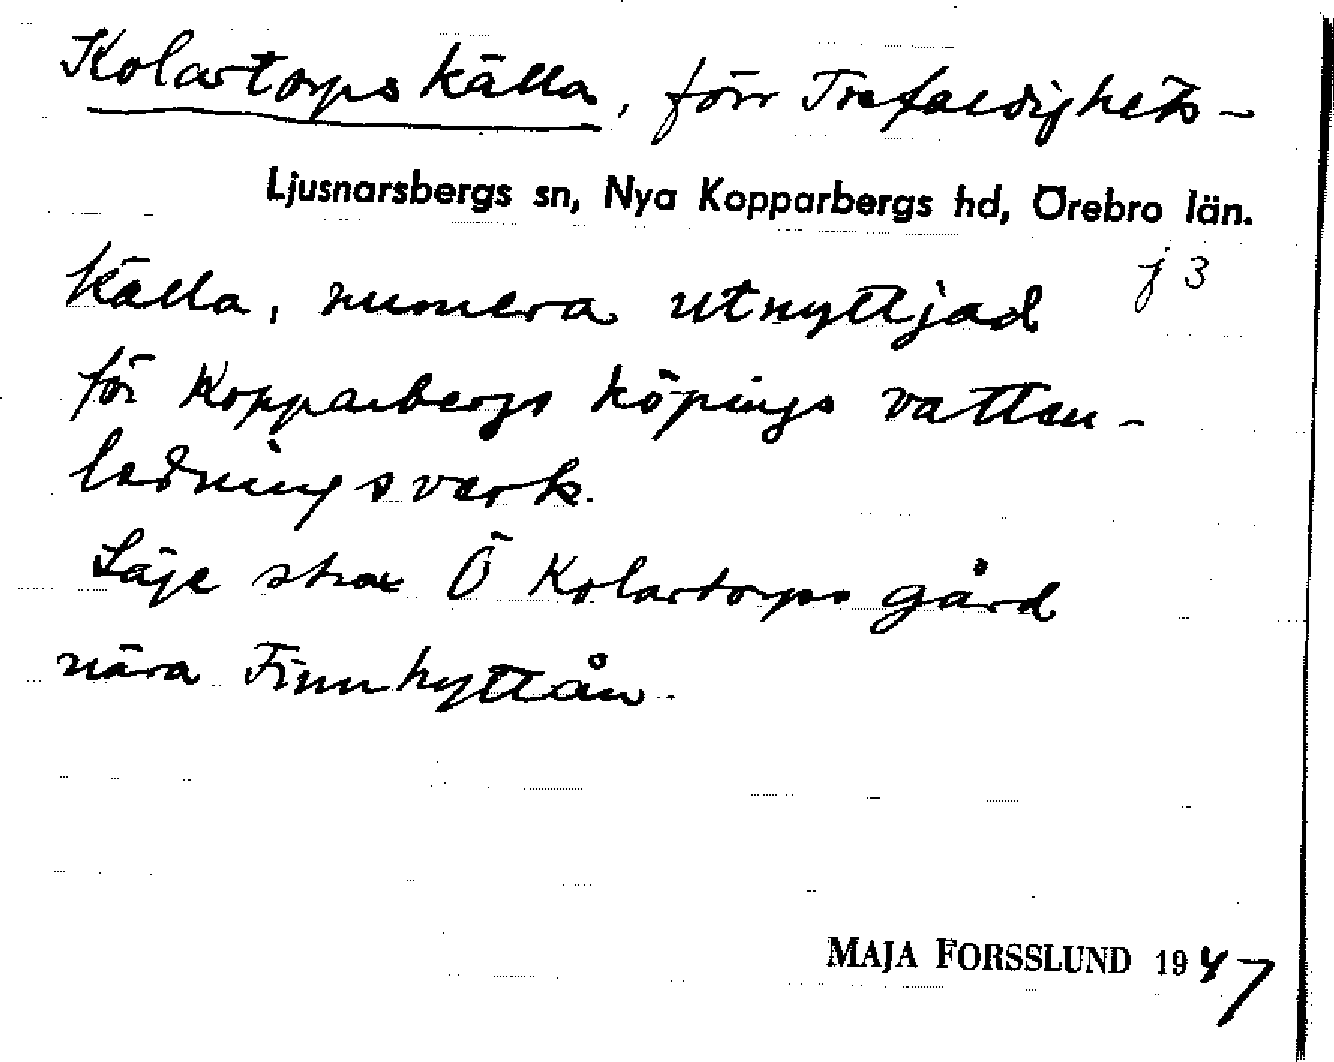 Kolartorps källa, förr Trefaldighets-
Ljusnarsbergs sn, Nya Kopparbergs hd, Örebro län.
j 3
Källa, numera utnyttjad
för Kopparbergs köpings vatten-
ledningsverk.
Läge strax Ö Kolartorps gård
nära Finnhyttån.
MAJA FORSSLUND 1947